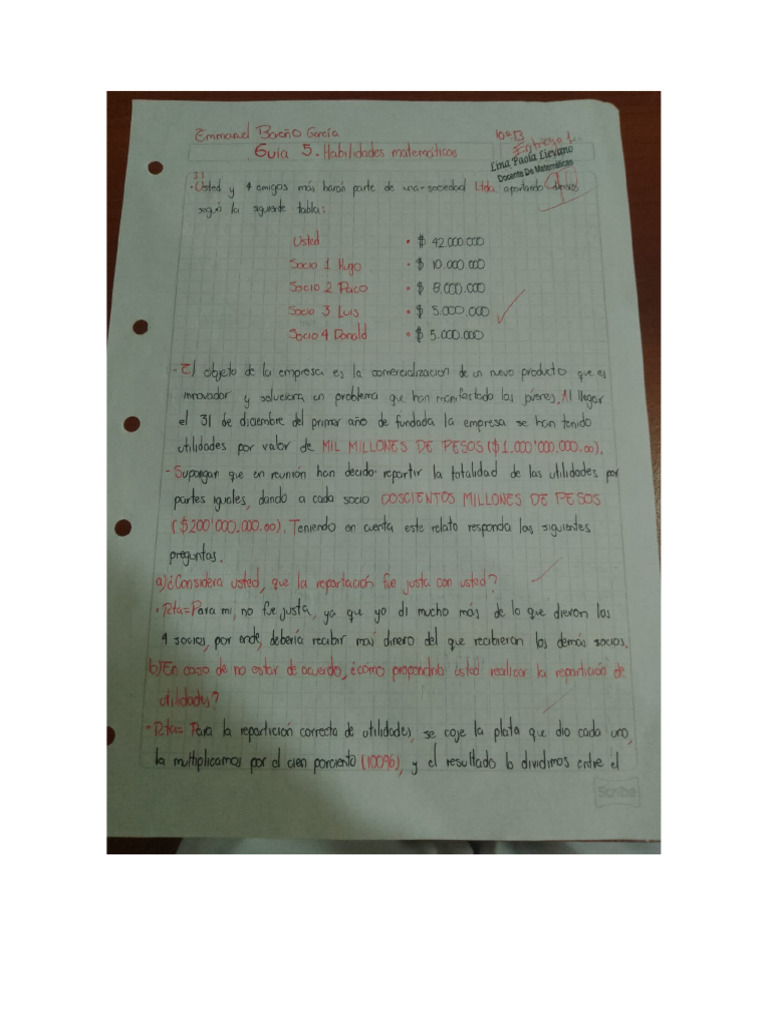 Emmanuel Boreño García
10-B
Entrega 1
Guía 5. Habilidades matemáticas
Lina Paola Lievano
Docente De Matemáticas
3.1
• Usted y 4 amigos más harán parte de una sociedad Ltda, aportando
según la siguiente tabla:
Usted • $ 42.000.000
Socio 1 Hugo • $ 10.000.000
Socio 2 Paco • $ 8.000.000
Socio 3 Luis • $ 5.000.000
Socio 4 Donald • $ 5.000.000
- El objeto de la empresa es la comercialización de un nuevo producto que es
innovador y soluciona un problema que han manifestado los jóvenes. Al llegar
el 31 de diciembre del primer año de fundada la empresa se han tenido
utilidades por valor de MIL MILLONES DE PESOS ($1.000'000.000.oo).
- Supongan que en reunión han decido repartir la totalidad de las utilidades por
partes iguales, dando a cada socio DOSCIENTOS MILLONES DE PESOS
($200'000.000.oo). Teniendo en cuenta este relato responda las siguientes
preguntas.
a) ¿Considera usted, que la repartación fue justa con usted?
• Rta= Para mi, no fue justa, ya que yo di mucho más de lo que dieron los
4 socios, por ende, debería recibir más dinero del que recibieran los demás socios.
b) En caso de no estar de acuerdo, ¿cómo propondría usted realizar la repartición de
utilidades?
• Rta= Para la repartición correcta de utilidades, se coje la plata que dio cada uno,
la multiplicamos por el cien porciento (100%), y el resultado lo dividimos entre el
Scribe